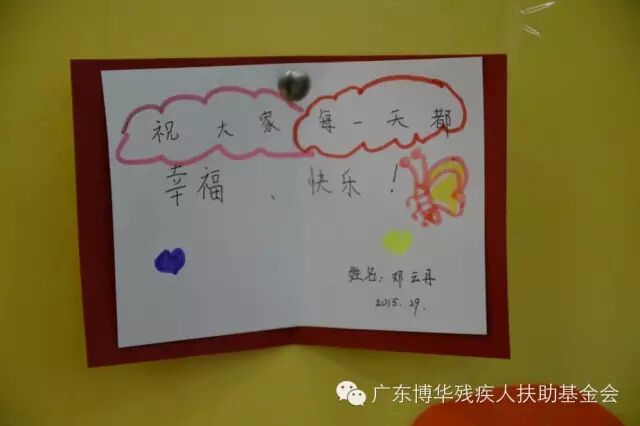 祝大家每一天都
幸福、快乐！
姓名：邓云丹
2015.29.
广东博华残疾人扶助基金会